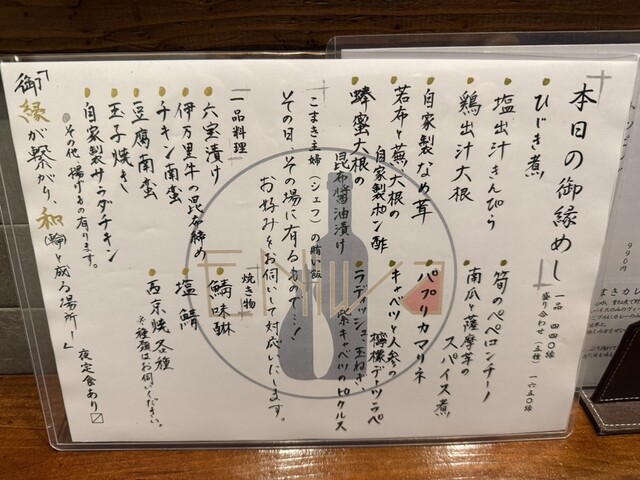 本日の御縁めし
一品 四四〇縁
盛り合わせ(五種) 一六五〇縁
ひじき煮
塩出汁きんぴら
鶏出汁大根
自家製なめ茸
若布と蕪大根の
自家製ポン酢
蜂蜜大根の
昆布醤油漬け
筍のペペロンチーノ
南瓜と薩摩芋の
スパイス煮
パプリカマリネ
キャベツと人参の
檸檬デーツラペ
ラディッシュ、玉ねぎ、
紫キャベツのピクルス
こまき主婦(シェフ)の賄い飯
その日、その場に有るもので…!
お好みをお伺いして対応いたします。
一品料理
六宝漬け
伊万里牛の昆布締め
チキン南蛮
豆腐南蛮
玉子焼き
自家製サラダチキン
その他、揚げもの有ります。
焼き物
鯖味醂
塩鯖
西京焼各種
※種類はお伺いください。
「御縁が繋がり、和(輪)と成る場所!」
夜定食あり
ENiwa
990円